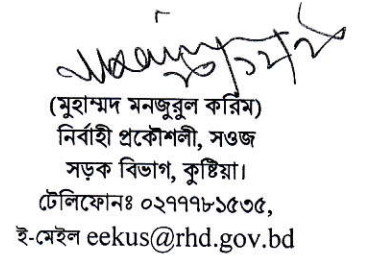 (মুহাম্মদ মনজুরুল করিম)
নির্বাহী প্রকৌশলী, সওজ
সড়ক বিভাগ, কুষ্টিয়া।
টেলিফোনঃ ০২৭৭৭৮১৫৩৫,
ই-মেইল eekus@rhd.gov.bd